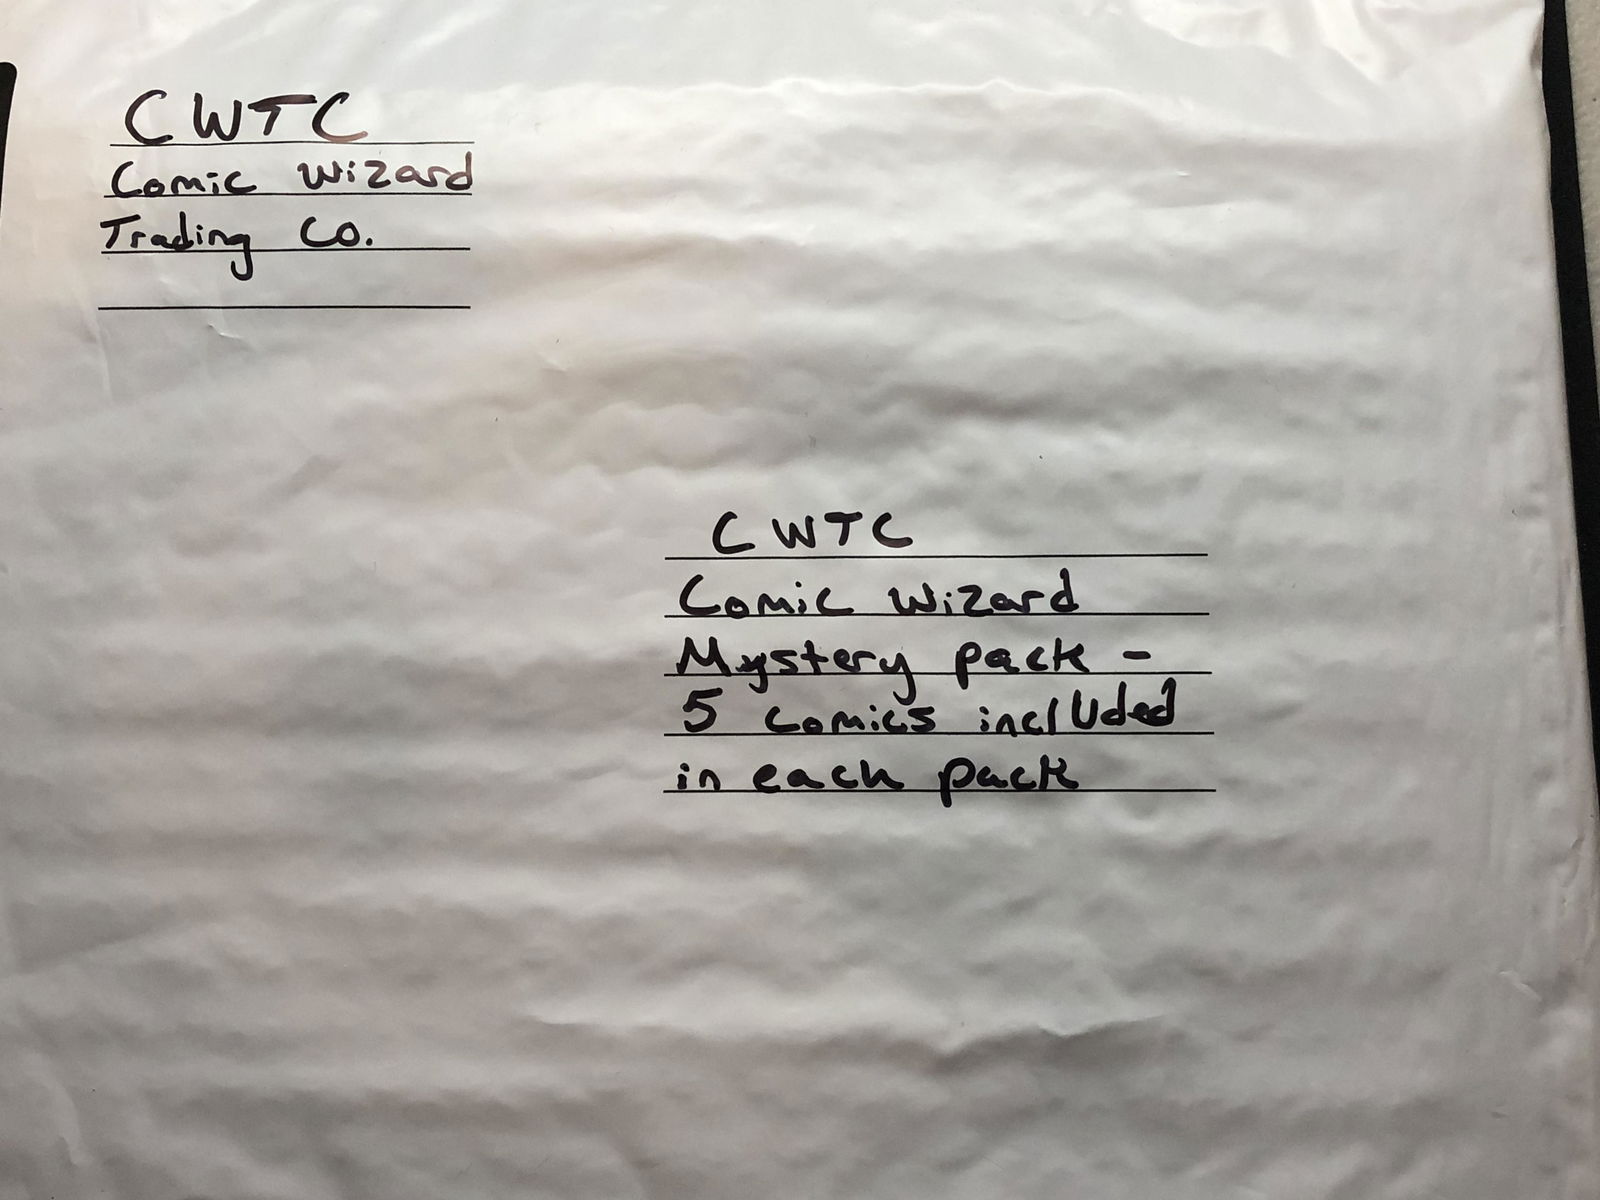 CWTC
Comic Wizard
Trading Co.
CWTC
Comic Wizard
Mystery pack -
5 comics included
in each pack